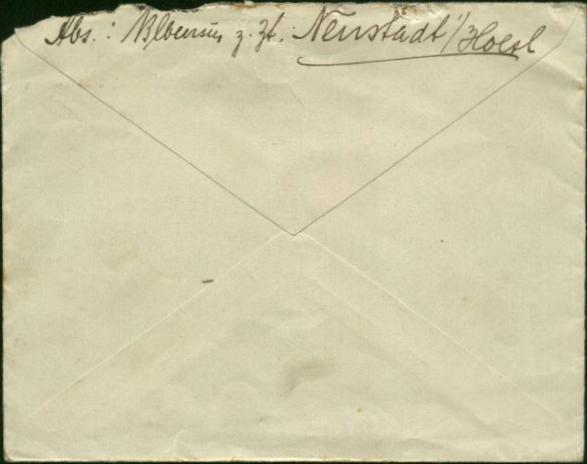 Abs.: z. Zt. Neustadt i/Holst